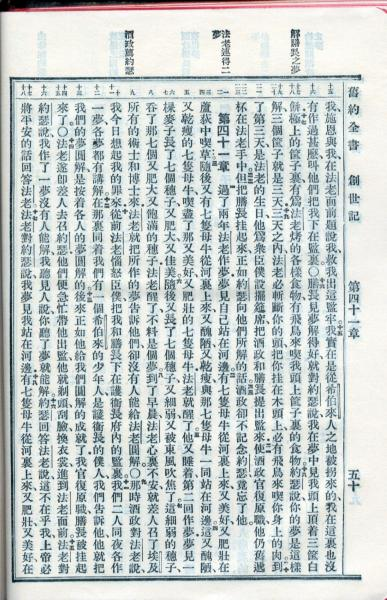 舊約全書 創世記 第四十一章 五十
解膳長之夢
法老連得二夢
酒政薦約瑟
我施恩與我在法老面前題說我救我出這監牢我實在是從希伯來人之地被拐來的我在這裏也沒
有作過甚麽叫他們把我下在監裏○膳長見夢解得好就對約瑟說我在夢中見我頭上頂着三筐白
餅極上的筐子裏有爲法老烤的各樣食物有飛鳥來喫我頭上筐子裏的食物約瑟說你的夢是這樣
解三個筐子就是三天三天之內法老必斬斷你的頭把你挂在木頭上必有飛鳥來喫你身上的肉到
了第三天是法老的生日他爲衆臣僕設擺筵席把酒政和膳長提出監來使酒政官復原職他仍舊遞
杯在法老手中但把膳長挂起來正如約瑟向他們所解的話酒政卻不記念約瑟竟忘了他
第四十一章 過了兩年法老作夢夢見自己站在河邊有七隻母牛從河裏上來又美好又肥壯在
蘆荻中喫草隨後又有七隻母牛從河裏上來又醜陋又乾瘦與那七隻母牛一同站在河邊這又醜陋
又乾瘦的七隻母牛喫盡了那又美好又肥壯的七隻母牛法老就醒了他又睡着第二回作夢夢見一
棵麥子長了七個穗子又肥大又佳美隨後又長了七個穗子又細弱又被東風吹焦了這細弱的穗子
吞了那七個又肥大又飽滿的穗子法老醒了不料是個夢到了早晨法老心裏不安就差人召了埃及
所有的術士和博士來法老就把所作的夢告訴他們卻沒有人能給法老圓解那時酒政對法老說
我今日想起我的罪來從前法老惱怒臣僕把我和膳長下在護衛長府內的監裏我們二人同夜各作
一夢各夢都有講解在那裏同着我們有一個希伯來的少年人是護衛長的僕人我們告訴他他就把
我們的夢圓解是按着各人的夢圓解的後來正如他給我們圓解的成就了我官復原職膳長被挂起
來了○法老遂卽差人去召約瑟他們便急忙帶他出監他就剃頭刮臉換衣裳進到法老面前法老對
約瑟說我作了一夢沒有人能解我聽見人說你聽了夢就能解約瑟回答法老說這不在乎我上帝必
將平安的話回答法老法老對約瑟說我夢見我站在河邊有七隻母牛從河裏上來又肥壯又美好在